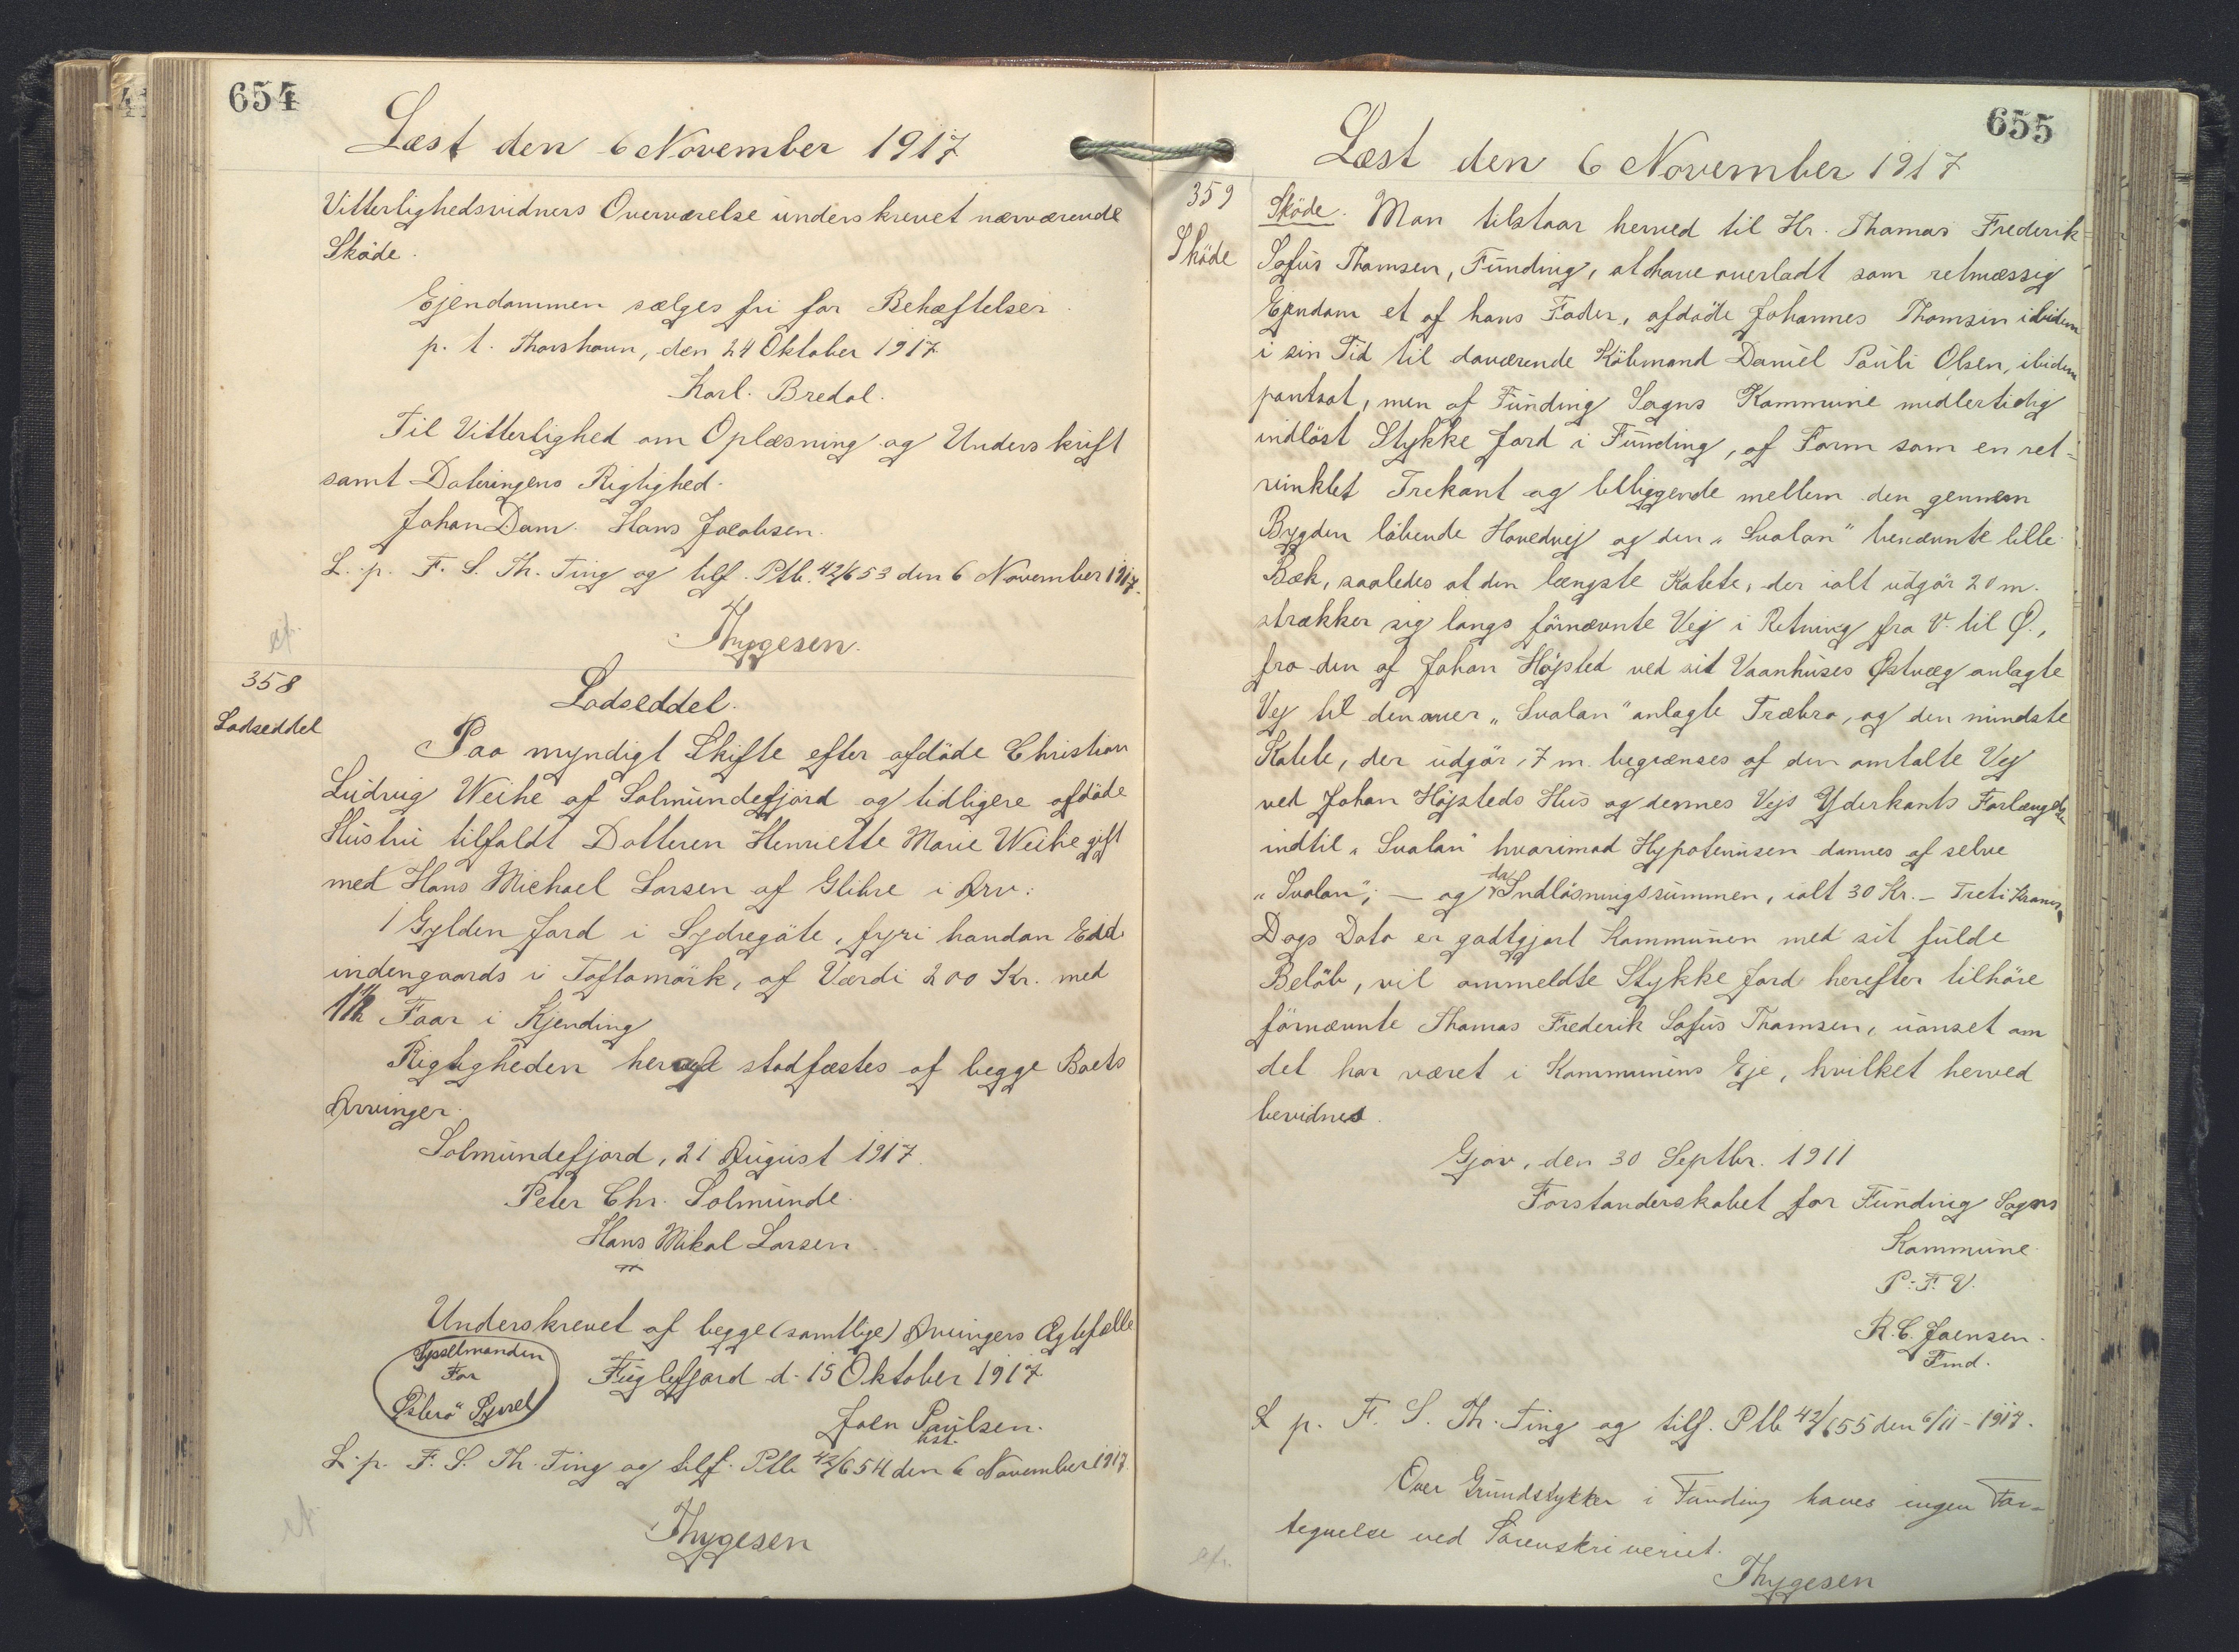 654
Læst den 6 November 1917
Vitterlighedsvidners Overværelse underskrevet nærværende
Sköde.
Ejendommen sælges fri for Behæftelser.
p. t. Thorshavn, den 24 Oktober 1917.
Karl. Bredal.
Til Vitterlighed om Oplæsning og Underskrift
samt Dateringens Rigtighed.
Johan Dam. Hans Jacobsen.
L. p. F. S. Th. Ting og tilf. Ptb. 42/653 den 6 November 1917.
Thygesen.
358
Lodseddel
Lodseddel.
Paa myndigt Skifte efter afdöde Christian
Ludvig Weihe af Solmundefjord og tidligere afdöde
Hustru tilfaldt Datteren Henriette Marie Weihe gift
med Hans Michael Larsen af Glibre i Arv:
1 Gylden Jord i Sydregöte, fyri handan
indengaards i Toftamörk, af Værdi 200 Kr. med
Faar i Kjending
Rigtigheden heraf stadfæstes af begge Boets
Arvinger.
Solmundefjord, 21 August 1917.
Peter Chr. Solmunde.
Hans Mikal Larsen.
Underskrevet af begge (samtlige) Arvingers Ægtefælle
Sysselmanden
For
Østerö Syssel
Fuglefjord d. 15 Oktober 1917.
Joen Poulsen.
kst.
L. p. F. S. Th. Ting og tilf. Ptb. 42/654 den 6 November 1917.
Thygesen
655
Læst den 6 November 1917
359
Sköde
Sköde. Man tilstaar herved til Hr. Thomas Frederik
Sofus Thomsen, Funding, at have overladt som retmæssig
Ejendom et af hans Fader, afdöde Johannes Thomsen ibidem
i sin Tid til daværende Köbmand Daniel Pauli Olsen, ibidem
pantsat, men af Funding Sogns Kommune midlertidig
indlöst Stykke Jord i Funding, af Form som en ret-
vinklet Trekant og beliggende mellem den gennem
Bygden löbende Hovedvej og den "Svalan" benævnte lille
Bæk, saaledes at den længste Katete, der ialt udgör 20 m.
strækker sig langs förnævnte Vej i Retning fra V. til Ø.,
fra den af Johan Höjsted ved sit Vaanhuses Østvæg anlagte
Vej til den over "Svalan" anlagte Træbro, og den mindste
Katete, der udgör 7 m. begrænses af den omtalte Vej
ved Johan Höjsteds Hus og dennes Vejs Yderkants Forlængelse
indtil "Svalan" hvorimod Hypotenusen dannes af selve
"Svalan"; — og da Indlösningssummen, ialt 30 Kr. — Treti Kroner
Dags Dato er godtgjort Kommunen med sit fulde
Belöb, vil ommeldte Stykke Jord herefter tilhöre
förnævnte Thomas Frederik Sofus Thomsen, uanset om
det har været i Kommunens Eje, hvilket herved
bevidnes.
Gjov, den 30 Septbr. 1911
Forstanderskabet for Funding Sogns
Kommune.
P. F. V.
R. C. Joensen.
Fmd.
L p. F. S. Th. Ting og tilf. Ptb 42/655 den 6/11 - 1917.
Over Grundstykker i Funding haves ingen For-
tegnelse ved Sorenskriveriet.
Thygesen